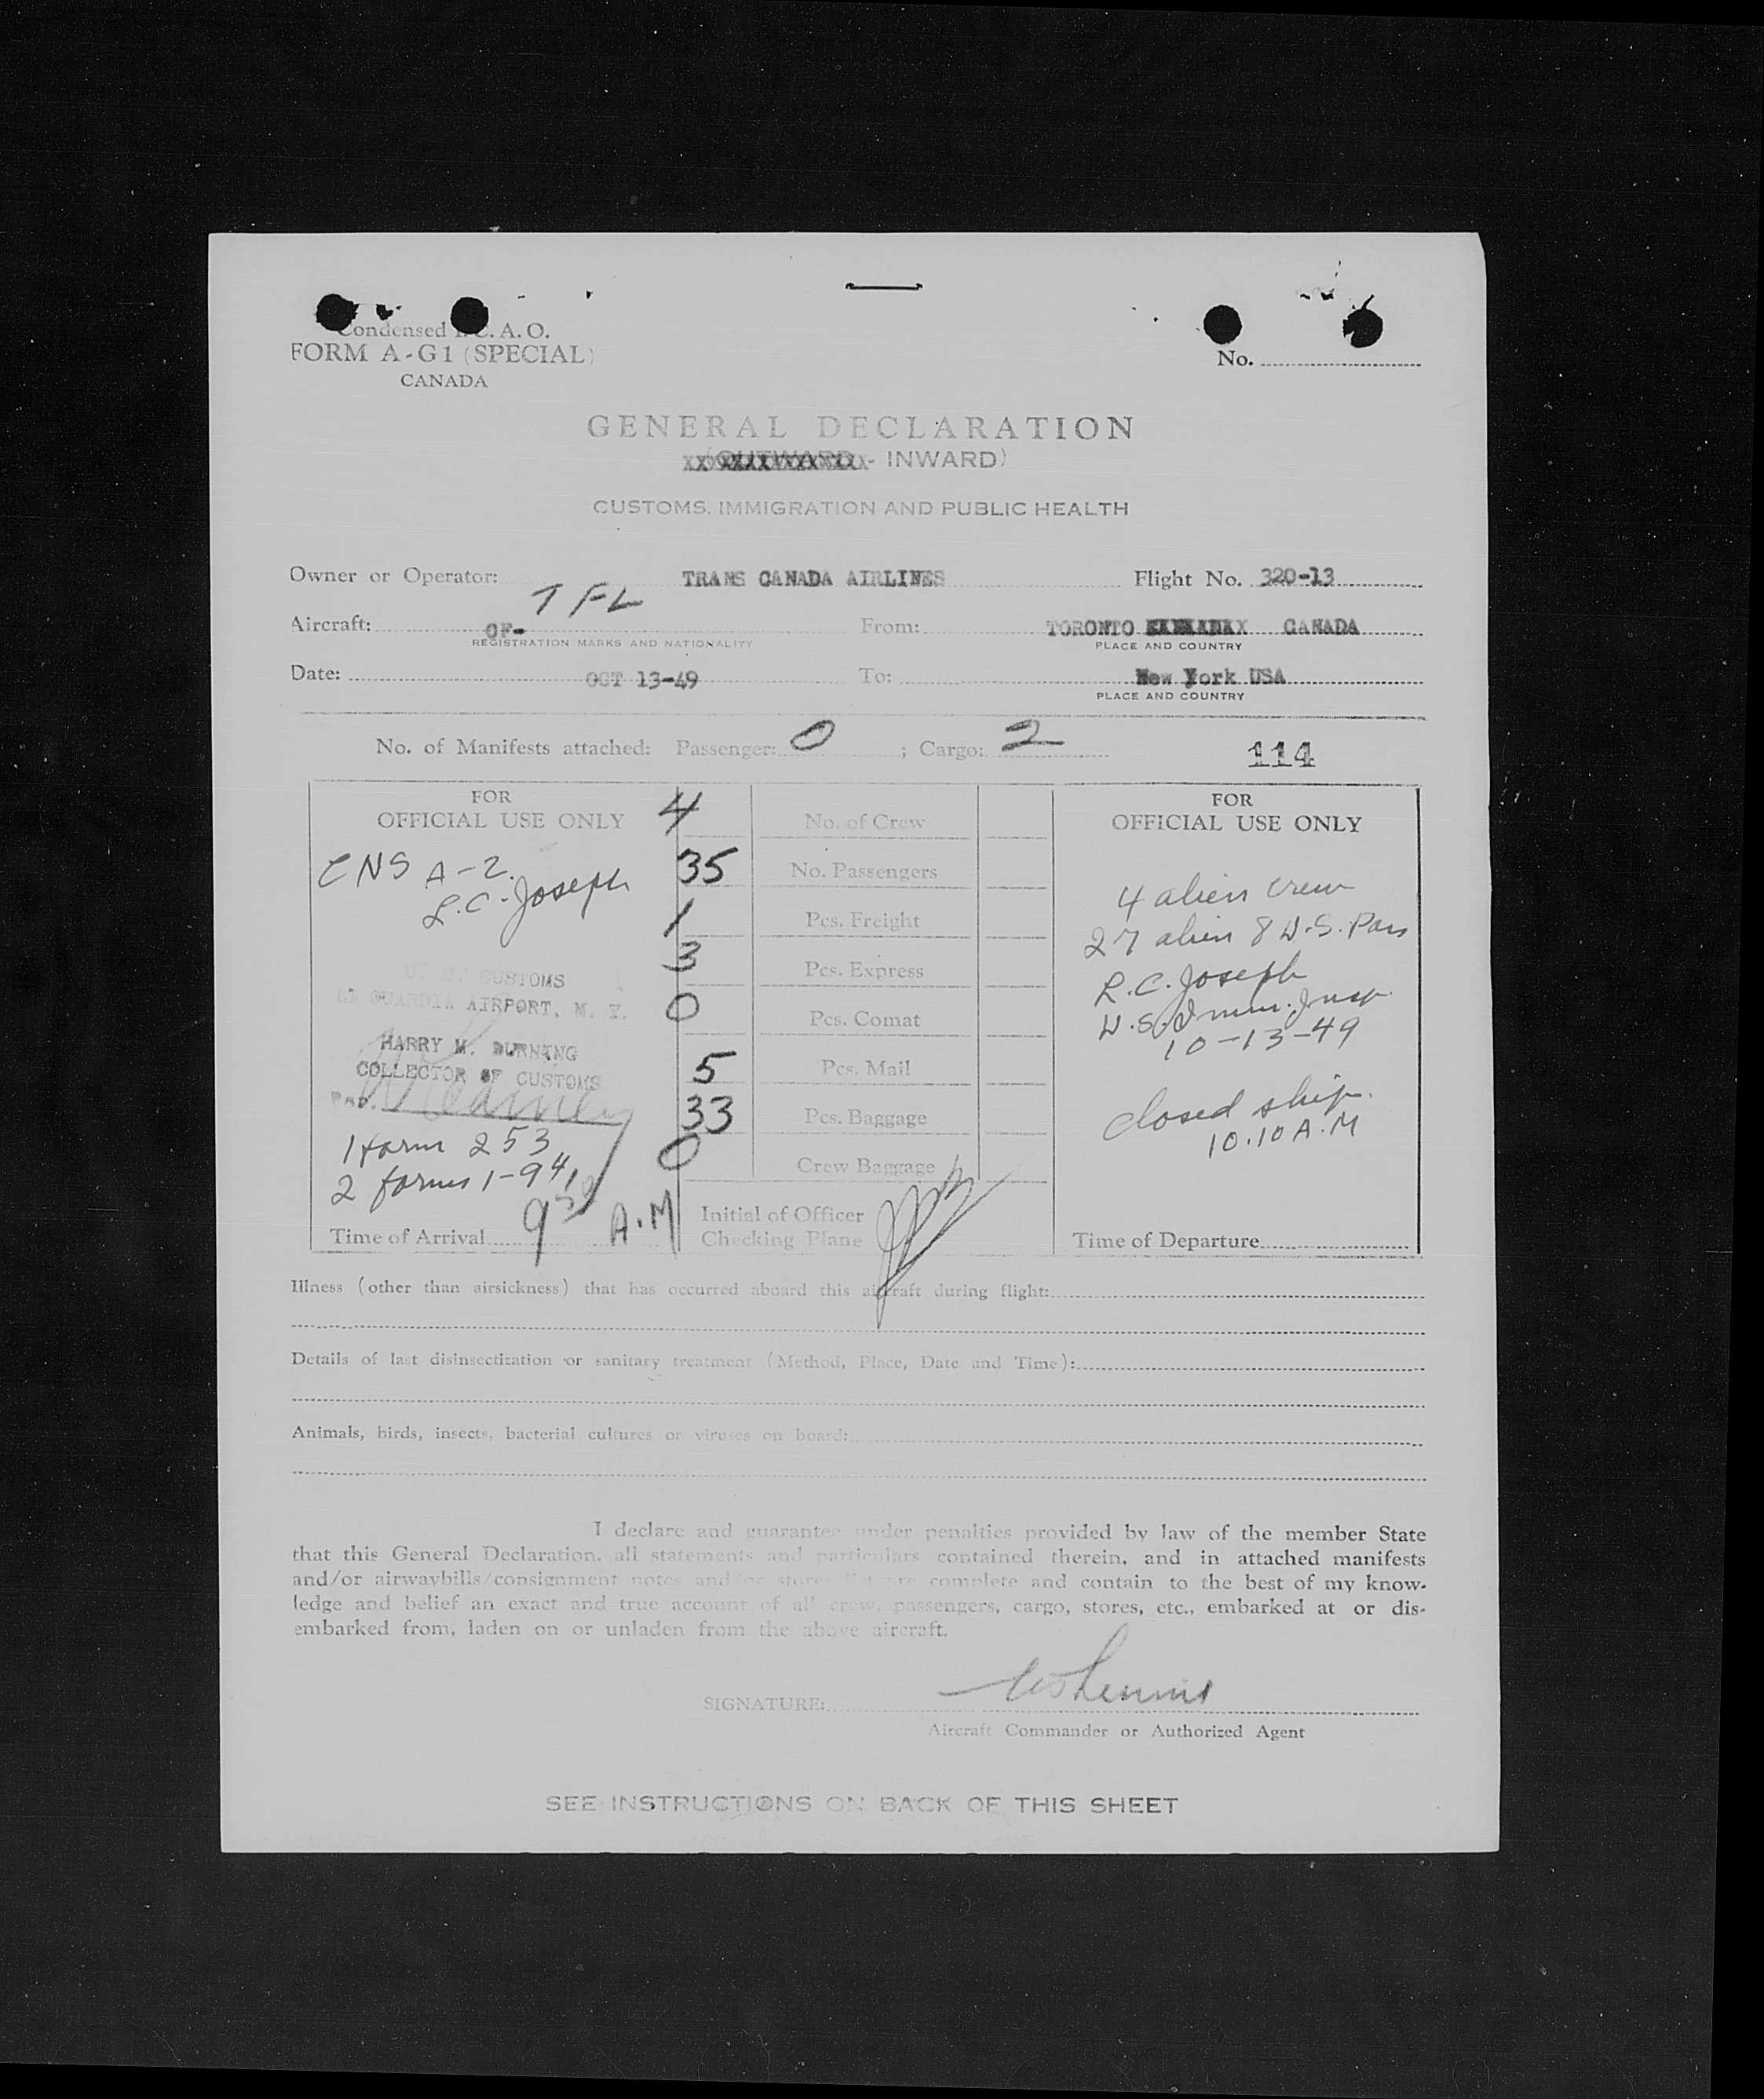 Condensed I.C.A.O.
FORM A-G1 (SPECIAL)
CANADA
No.
GENERAL DECLARATION
(OUTWARD - INWARD)
CUSTOMS, IMMIGRATION AND PUBLIC HEALTH
Owner or Operator: TRANS CANADA AIRLINES Flight No. 320-13
Aircraft: CF- TFL From: TORONTO CANADA
REGISTRATION MARKS AND NATIONALITY PLACE AND COUNTRY
Date: OCT 13-49 To: New York USA
PLACE AND COUNTRY
No. of Manifests attached: Passenger: 0 ; Cargo: 2 114
FOR
OFFICIAL USE ONLY
CNS A-2.
R.C. Joseph
U. S. CUSTOMS
LA GUARDIA AIRPORT, N. Y.
HARRY M. DURNING
COLLECTOR OF CUSTOMS
1 form 253
2 forms 1-94
Time of Arrival 9 30 A.M
4 No. of Crew
35 No. Passengers
1 Pcs. Freight
3 Pcs. Express
0 Pcs. Comat
5 Pcs. Mail
33 Pcs. Baggage
0 Crew Baggage
Initial of Officer
Checking Plane
FOR
OFFICIAL USE ONLY
4 alien crew
27 alien 8 U.S. Pass
R.C. Joseph
U.S. Imm. Insp.
10-13-49
closed ship.
10.10 A.M
Time of Departure
Illness (other than airsickness) that has occurred aboard this aircraft during flight:
Details of last disinsectization or sanitary treatment (Method, Place, Date and Time):
Animals, birds, insects, bacterial cultures or viruses on board:
I declare and guarantee under penalties provided by law of the member State
that this General Declaration, all statements and particulars contained therein, and in attached manifests
and/or airwaybills/consignment notes and/or stores list are complete and contain to the best of my know-
ledge and belief an exact and true account of all crew, passengers, cargo, stores, etc., embarked at or dis-
embarked from, laden on or unladen from the above aircraft.
SIGNATURE:
Aircraft Commander or Authorized Agent
SEE INSTRUCTIONS ON BACK OF THIS SHEET